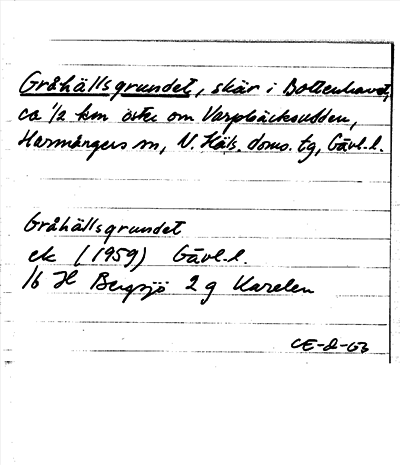 Gråhällsgrundet, skär i Bottenhavet,
ca ½ km öster om Varpbäcksudden,
Harmångers sn, N. Häls. doms. tg, Gävl. l.
Gråhällsgrundet
ek (1959) Gävl. l.
16 H Bergsjö 2 g Karelen